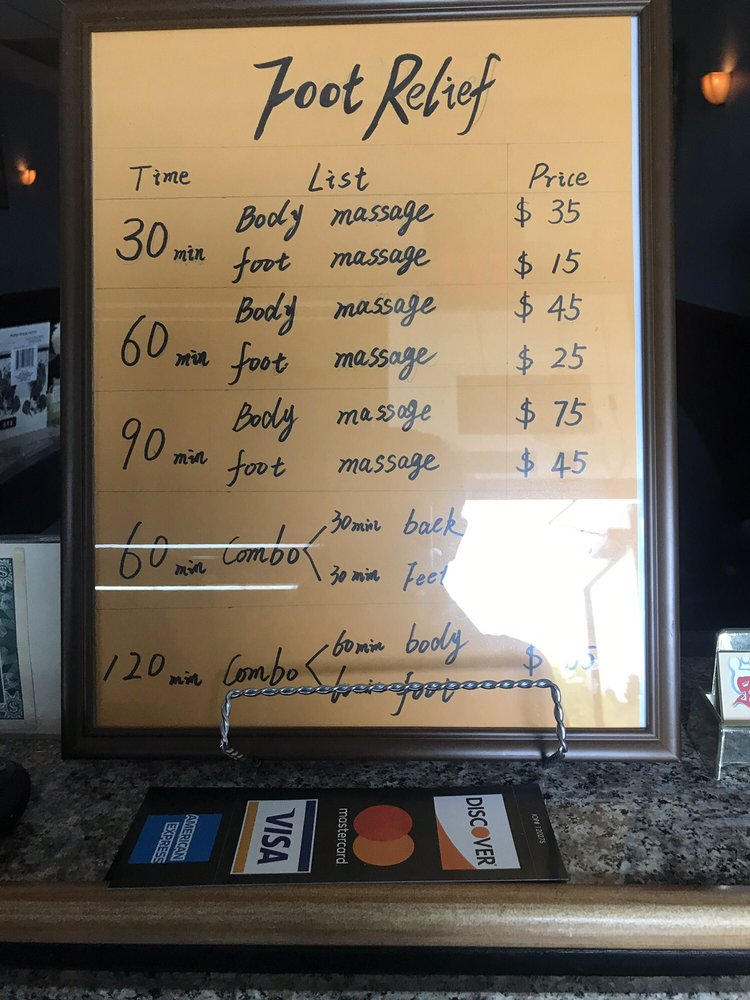 Foot Relief
Time List Price
30 min Body massage $ 35
foot massage $ 15
60 min Body massage $ 45
foot massage $ 25
90 min Body massage $ 75
foot massage $ 45
60 min Combo 30 min back
30 min Feet
120 min Combo 60 min body $
foot
AMERICAN EXPRESS
VISA
mastercard
DISCOVER